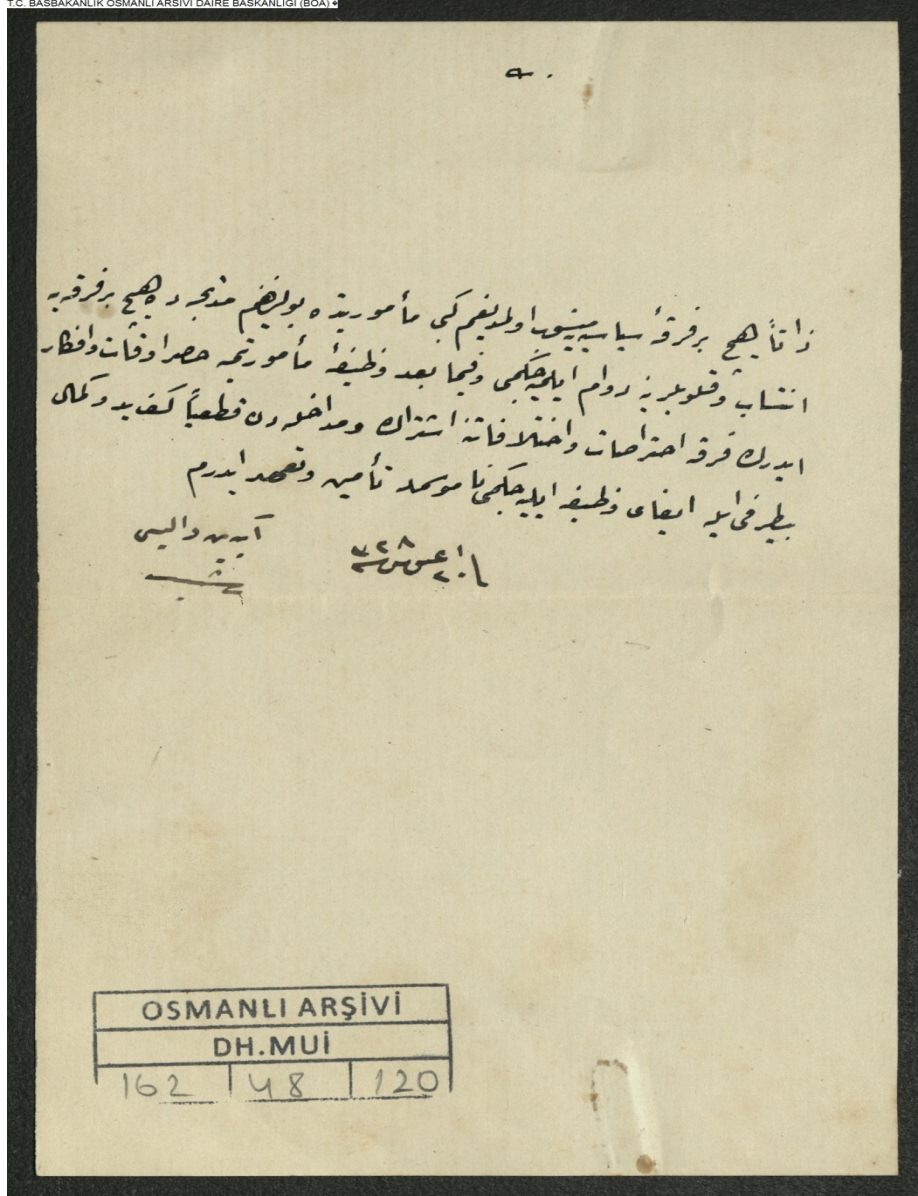 T.C. BAŞBAKANLIK OSMANLI ARŞİVİ DAİRE BAŞKANLIĞI (BOA)
ذاتاً هیچ بر فرقهٔ سیاسیه‌یه منسوب اولمدیغم کبی مأموریتده بولندیغم مدتجه ده هیچ بر فرقه‌یه
انتساب وقلوبلرینه دوام ایلمیه‌جکمی وفیما بعد وظیفهٔ مأموریتمه حصر اوقات وافکار
ایدرك فرقه احتراصات واختلافاتنه اشتراك ومداخله‌دن قطعیاً کف ید و کمال
بیطرفی ایله ایفای وظیفه ایلیه‌جکمی ناموسمله تأمین وتعهد ایدرم
آیدین والیسی
٢٠ اغستوس ٣٢٨
OSMANLI ARŞİVİ
DH.MUİ
162 48 120